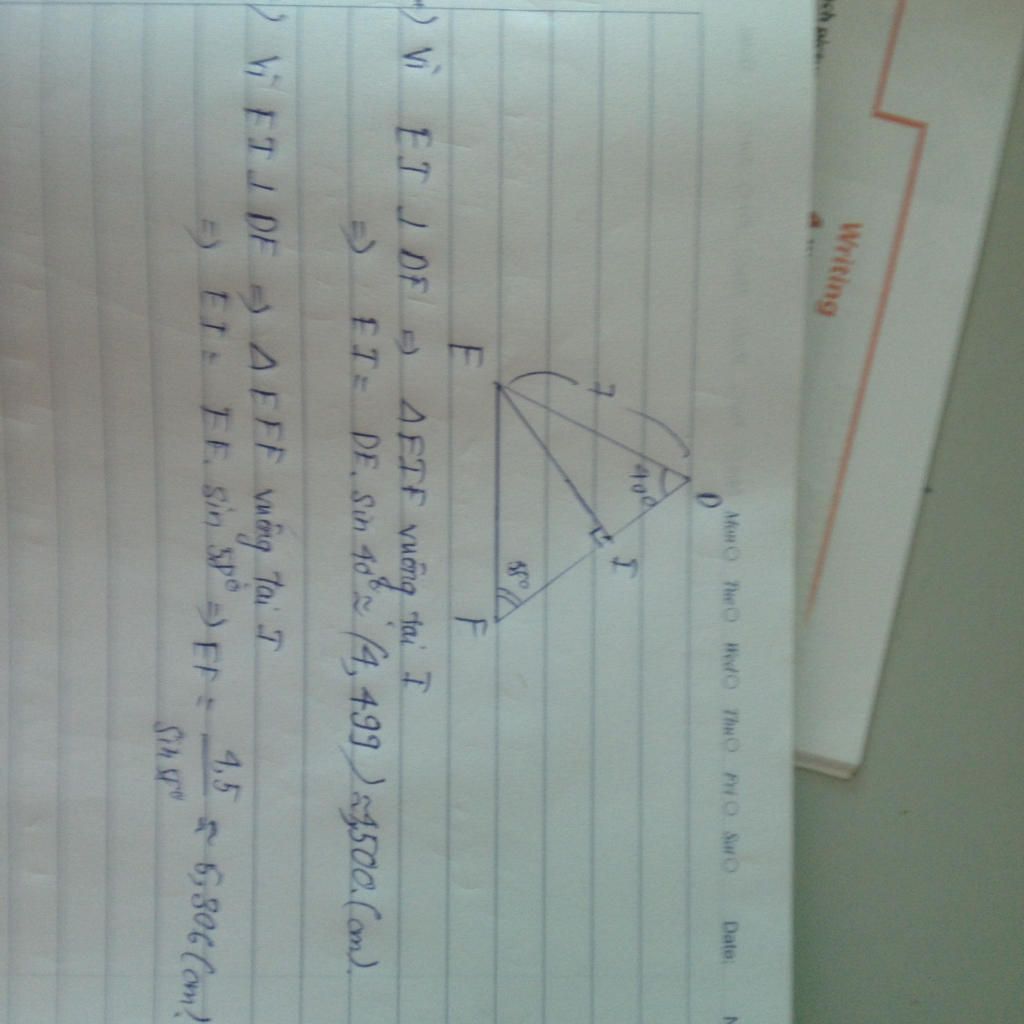 Writing
Mon Tue Wed Thu Fri Sat Date:
D
7
40°
I
E
58°
F
a) Vì EI ⊥ DF => Δ EIF vuông tại I
=> EI = DE. sin 40° ≈ (4,499) ≈ 4,500.(cm).
) Vì EI ⊥ DF => Δ EFF vuông tại I
=> EI = EF. sin 58° => EF = 4,5 / sin 58° ≈ 5,306 (cm).